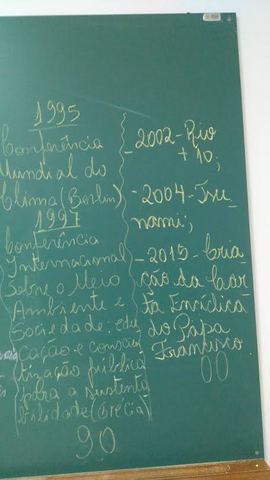 1995
Conferência
Mundial do
Clima (Berlin)
1997
Conferência
Internacional
Sobre o Meio
Ambiente e
Sociedade: edu
cação e conscien
tização pública
para a sustenta
bilidade (Grécia)
90
- 2002 - Rio
+ 10;
- 2004 - Tsu-
nami;
- 2015 - Cria-
ção da Car-
ta Encíclica
do Papa
Francisco.
00